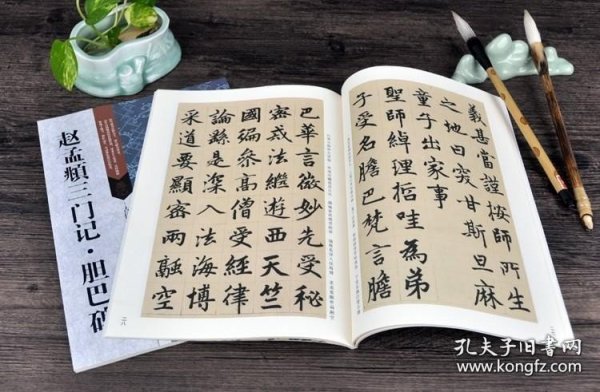 義甚當謹按師所生
之地曰突甘斯旦麻
童子出家事
聖師綽理哲哇為弟
子受名膽巴梵言膽
巴華言微妙先受秘
密戒法繼遊西天竺
國徧參高僧受經律
論繇是深入法海博
采道要顯密兩融空
二八
赵孟頫三门记·胆巴碑
孔夫子旧书网
www.kongfz.com